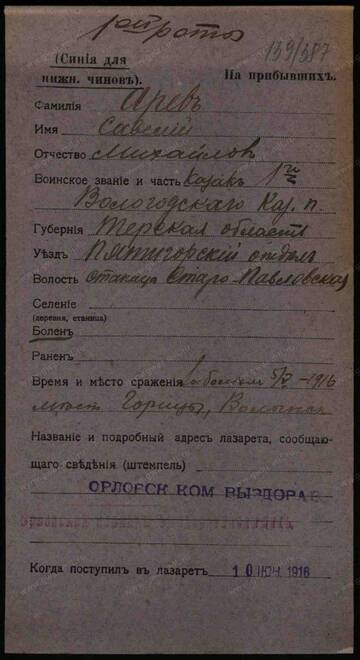 139/387
(Синія для
нижн. чиновъ).
На прибывшихъ.
Фамилія Аревъ
Имя Савелій
Отчество Михайлов
Воинское званіе и часть Казакъ 1й
Каз. п.
Губернія Терская область
Уѣздъ Пятигорскій отдѣлъ
Волость Старо-Павловская
Селеніе
(деревня, станица)
Боленъ
Раненъ
Время и мѣсто сраженія 1916
Названіе и подробный адресъ лазарета, сообщаю-
щаго свѣдѣнія (штемпель)
ОРЛОВСК КОМ ВЫЗДОРАВ
Когда поступилъ въ лазаретъ 10 ІЮН. 1916